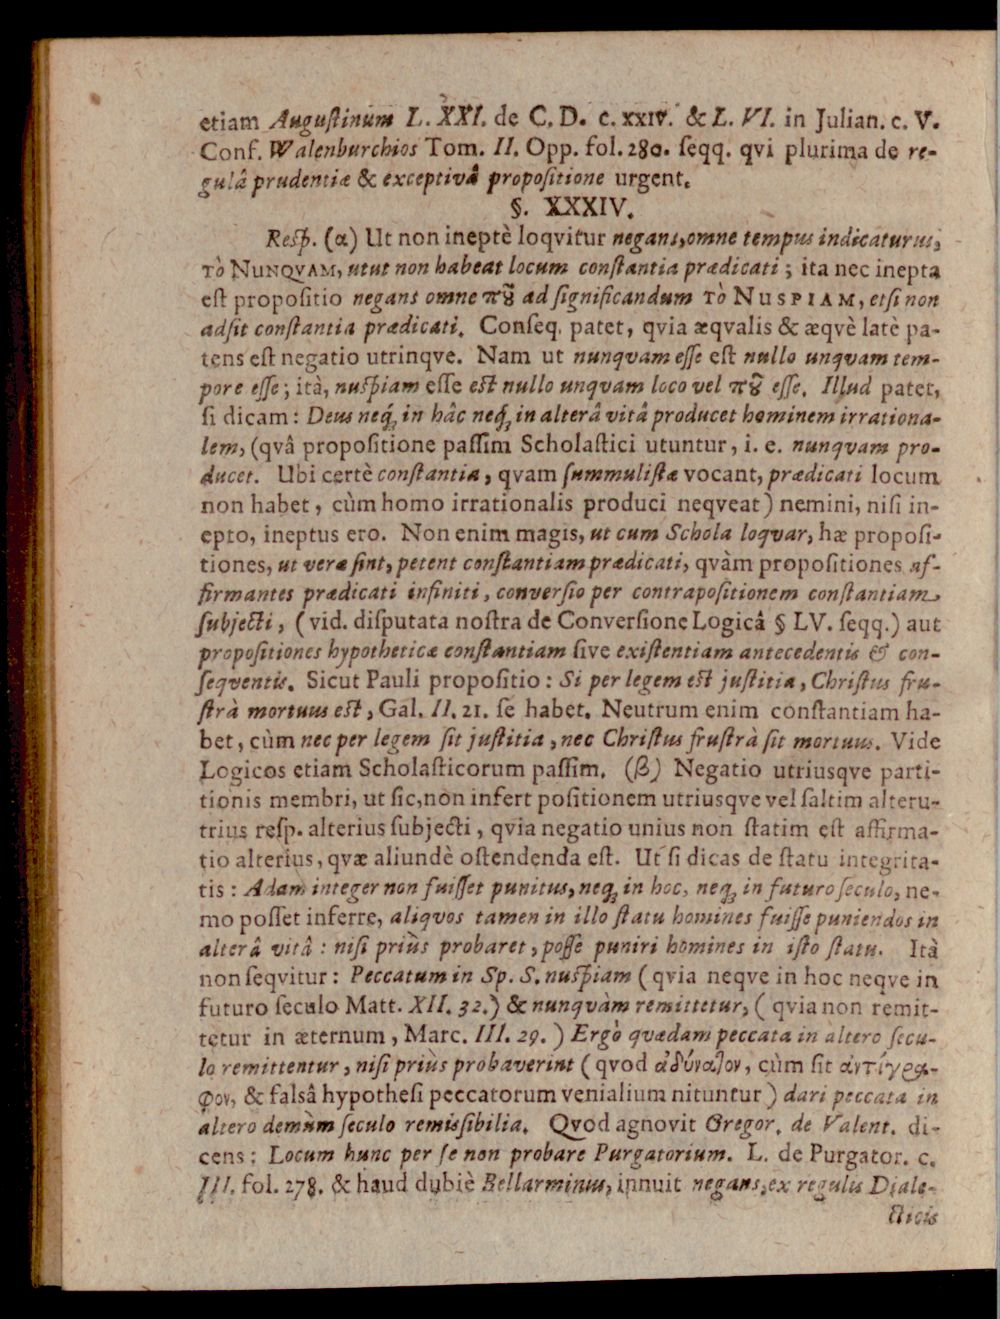 etiam Auguſtinum L. XXI. de C. D. c. xxiv. & L. VI. in Julian. c. V.
Conf. Walenburchios Tom. II. Opp. fol. 280. ſeqq. qvi plurima de re-
gulâ prudentiæ & exceptivâ propoſitione urgent.
§. XXXIV.
Reſp. (α) Ut non ineptè loqvitur negans, omne tempus indicaturus,
τὸ NUNQVAM, utut non habeat locum conſtantia prædicati; ita nec inepta
eſt propoſitio negans omne πȣ͂ ad ſignificandum τὸ NUSPIAM, etſi non
adſit conſtantia prædicati. Conſeq. patet, qvia æqvalis & æqvè latè pa-
tens eſt negatio utrinqve. Nam ut nunquam eſſe eſt nullo unquam tem-
pore eſſe; ità, nuſpiam eſſe eſt nullo unquam loco vel πȣ͂ eſſe. Illud patet,
ſi dicam: Deus neq́ꝫ in hâc neq́ꝫ in alterâ vitâ producet hominem irrationa-
lem, (qvâ propoſitione paſſim Scholaſtici utuntur, i. e. nunquam pro-
ducet. Ubi certè conſtantia, qvam ſummuliſtæ vocant, prædicati locum
non habet, cùm homo irrationalis produci neqveat) nemini, niſi in-
epto, ineptus ero. Non enim magis, ut cum Schola loquar, hæ propoſi-
tiones, ut veræ ſint, petent conſtantiam prædicati, qvàm propoſitiones af-
firmantes prædicati infiniti, converſio per contrapoſitionem conſtantiam
ſubjecti, (vid. diſputata noſtra de Converſione Logicâ § LV. ſeqq.) aut
propoſitiones hypotheticæ conſtantiam ſive exiſtentiam antecedentis & con-
ſeqventis. Sicut Pauli propoſitio: Si per legem eſt juſtitia, Chriſtus fru-
ſtrà mortuus eſt, Gal. II. 21. ſe habet. Neutrum enim conſtantiam ha-
bet, cùm nec per legem ſit juſtitia, nec Chriſtus fruſtrà ſit mortuus. Vide
Logicos etiam Scholaſticorum paſſim. (β) Negatio utriusqve parti-
tionis membri, ut ſic, non infert poſitionem utriusqve vel ſaltim alteru-
trius reſp. alterius ſubjecti, qvia negatio unius non ſtatim eſt affirma-
tio alterius, qvæ aliundè oſtendenda eſt. Ut ſi dicas de ſtatu integrita-
tis: Adam integer non fuiſſet punitus, neqꝫ in hoc, neqꝫ in futuro ſeculo, ne-
mo poſſet inferre, aliqvos tamen in illo ſtatu homines fuiſſe puniendos in
alterâ vitâ: niſi priùs probaret, poſſe puniri homines in iſto ſtatu. Ità
non ſeqvitur: Peccatum in Sp. S. nuſpiam (qvia neqve in hoc neqve in
futuro ſeculo Matt. XII. 32.) & nunquàm remittetur, (qvia non remit-
tetur in æternum, Marc. III. 29.) Ergò quædam peccata in altero ſecu-
lo remittentur, niſi priùs probaverint (qvod ἀδύναlον, cùm ſit ἀντίγρα-
φον, & falsâ hypotheſi peccatorum venialium nituntur) dari peccata in
altero demùm ſeculo remiſſibilia. Qvod agnovit Gregor. de Valent. di-
cens: Locum hunc per ſe non probare Purgatorium. L. de Purgator. c.
III. fol. 278. & haud dubiè Bellarminus, innuit negans, ex regulis Diale-
cticis